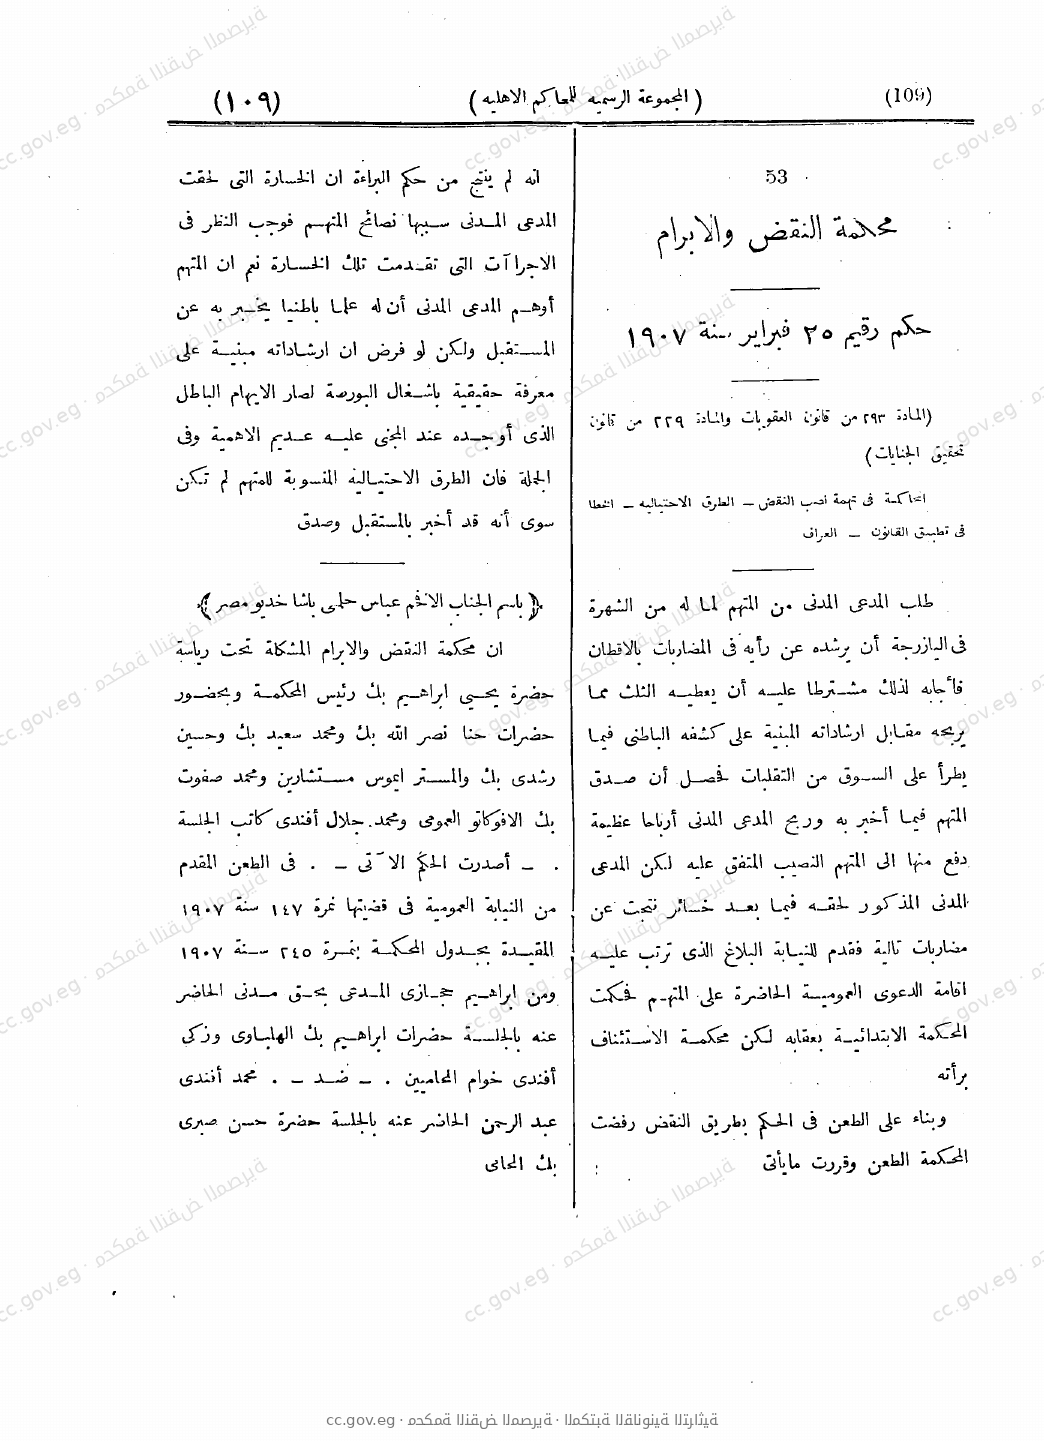 (109)
( المجموعة الرسمية للمحاكم الاهلية )
(١٠٩)
53
محكمة النقض والابرام
حكم رقيم ٢٥ فبراير سنة ١٩٠٧
(المادة ٢٩٣ من قانون العقوبات والمادة ٢٢٩ من قانون
تحقيق الجنايات)
المحاكمة فى تهمة نصب النقض – الطرق الاحتياليه – الخطا
فى تطبيق القانون – العراف
طلب المدعى المدنى من المتهم لما له من الشهرة
فى اليازرجة أن يرشده عن رأيه فى المضاربات بالاقطان
فأجابه لذلك مشترطا عليه أن يعطيه الثلث مما
يربحه مقابل ارشاداته المبنية على كشفه الباطنى فيما
يطرأ على السوق من التقلبات فحصل أن صدق
المتهم فيما أخبر به وربح المدعى المدنى أرباحا عظيمة
دفع منها الى المتهم النصيب المتفق عليه لكن المدعى
المدنى المذكور لحقه فيما بعد خسائر نتجت عن
مضاربات تالية فقدم للنيابة البلاغ الذى ترتب عليه
اقامة الدعوى العمومية الحاضرة على المتهم فحكمت
المحكمة الابتدائية بعقابه لكن محكمة الاستئناف
برأته
وبناء على الطعن فى الحكم بطريق النقض رفضت
المحكمة الطعن وقررت مايأتى
انه لم ينتج من حكم البراءة ان الخسارة التى لحقت
المدعى المدنى سببها نصائح المتهم فوجب النظر فى
الاجراآت التى تقدمت تلك الخسارة نعم ان المتهم
أوهم المدعى المدنى أن له علما باطنيا يخبر به عن
المستقبل ولكن لو فرض ان ارشاداته مبنية على
معرفة حقيقية باشغال البورصة لصار الايهام الباطل
الذى أوجده عند المجنى عليه عديم الاهمية وفى
الجملة فان الطرق الاحتياليه المنسوبة للمتهم لم تكن
سوى أنه قد أخبر بالمستقبل وصدق
﴿ باسم الجناب الافخم عباس حلمى باشا خديو مصر ﴾
ان محكمة النقض والابرام المشكلة تحت رياسة
حضرة يحيى ابراهيم بك رئيس المحكمة وبحضور
حضرات حنا نصر الله بك ومحمد سعيد بك وحسين
رشدى بك والمستر ايموس مستشارين ومحمد صفوت
بك الافوكاتو العمومى ومحمد جلال أفندى كاتب الجلسة
. – أصدرت الحكم الآتى – . فى الطعن المقدم
من النيابة العمومية فى قضيتها نمرة ١٤٧ سنة ١٩٠٧
المقيدة بجدول المحكمة بنمرة ٢٤٥ سنة ١٩٠٧
ومن ابراهيم حجازى المدعى بحق مدنى الحاضر
عنه بالجلسة حضرات ابراهيم بك الهلباوى وزكى
أفندى خوام المحاميين . – ضد – . محمد أفندى
عبد الرحمن الحاضر عنه بالجلسة حضرة حسن صبرى
بك المحامى
cc.gov.eg · محكمة النقض المصرية · المكتبة القانونية التراثية